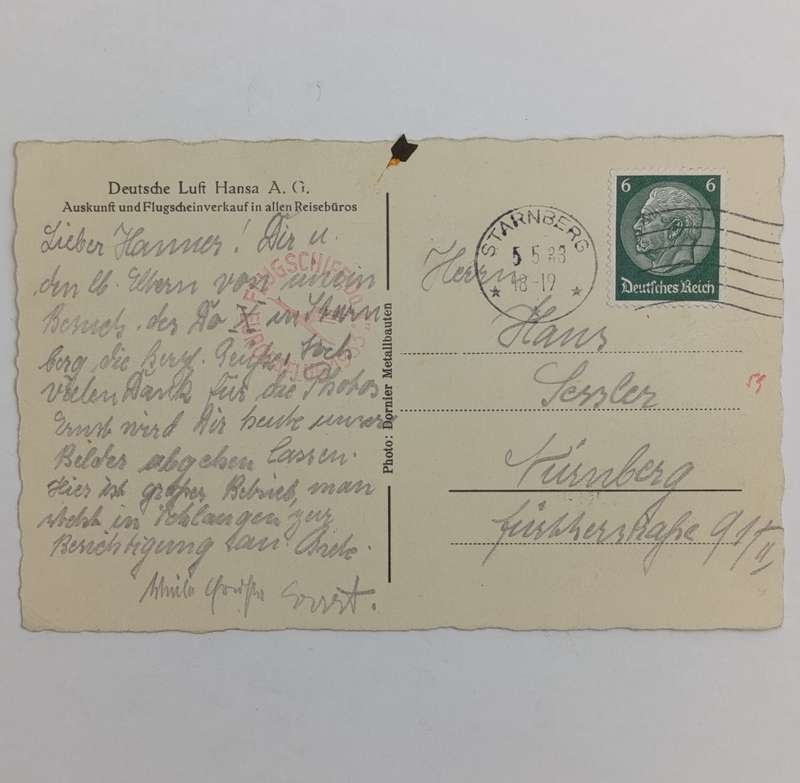 Deutsche Luft Hansa A. G.
Auskunft und Flugscheinverkauf in allen Reisebüros
Lieber Hanner! Dir u.
den lb. Eltern von unserm
Besuch der Do X in Starn
berg die herzl. Grüße. Noch
vielen Dank für die Photos
Ernst wird Dir heute unsere
Bilder abgehen lassen.
Hier ist großer Betrieb, man
steht in Schlangen zur
Besichtigung an.
Viele Grüße Ernst.
FLUGSCHIFF
Photo: Dornier Metallbauten
STARNBERG
5 5 33
18-19
6 6
Deutsches Reich
Herrn
Hans
Sessler
Nürnberg
Fürtherstraße 91/II
59